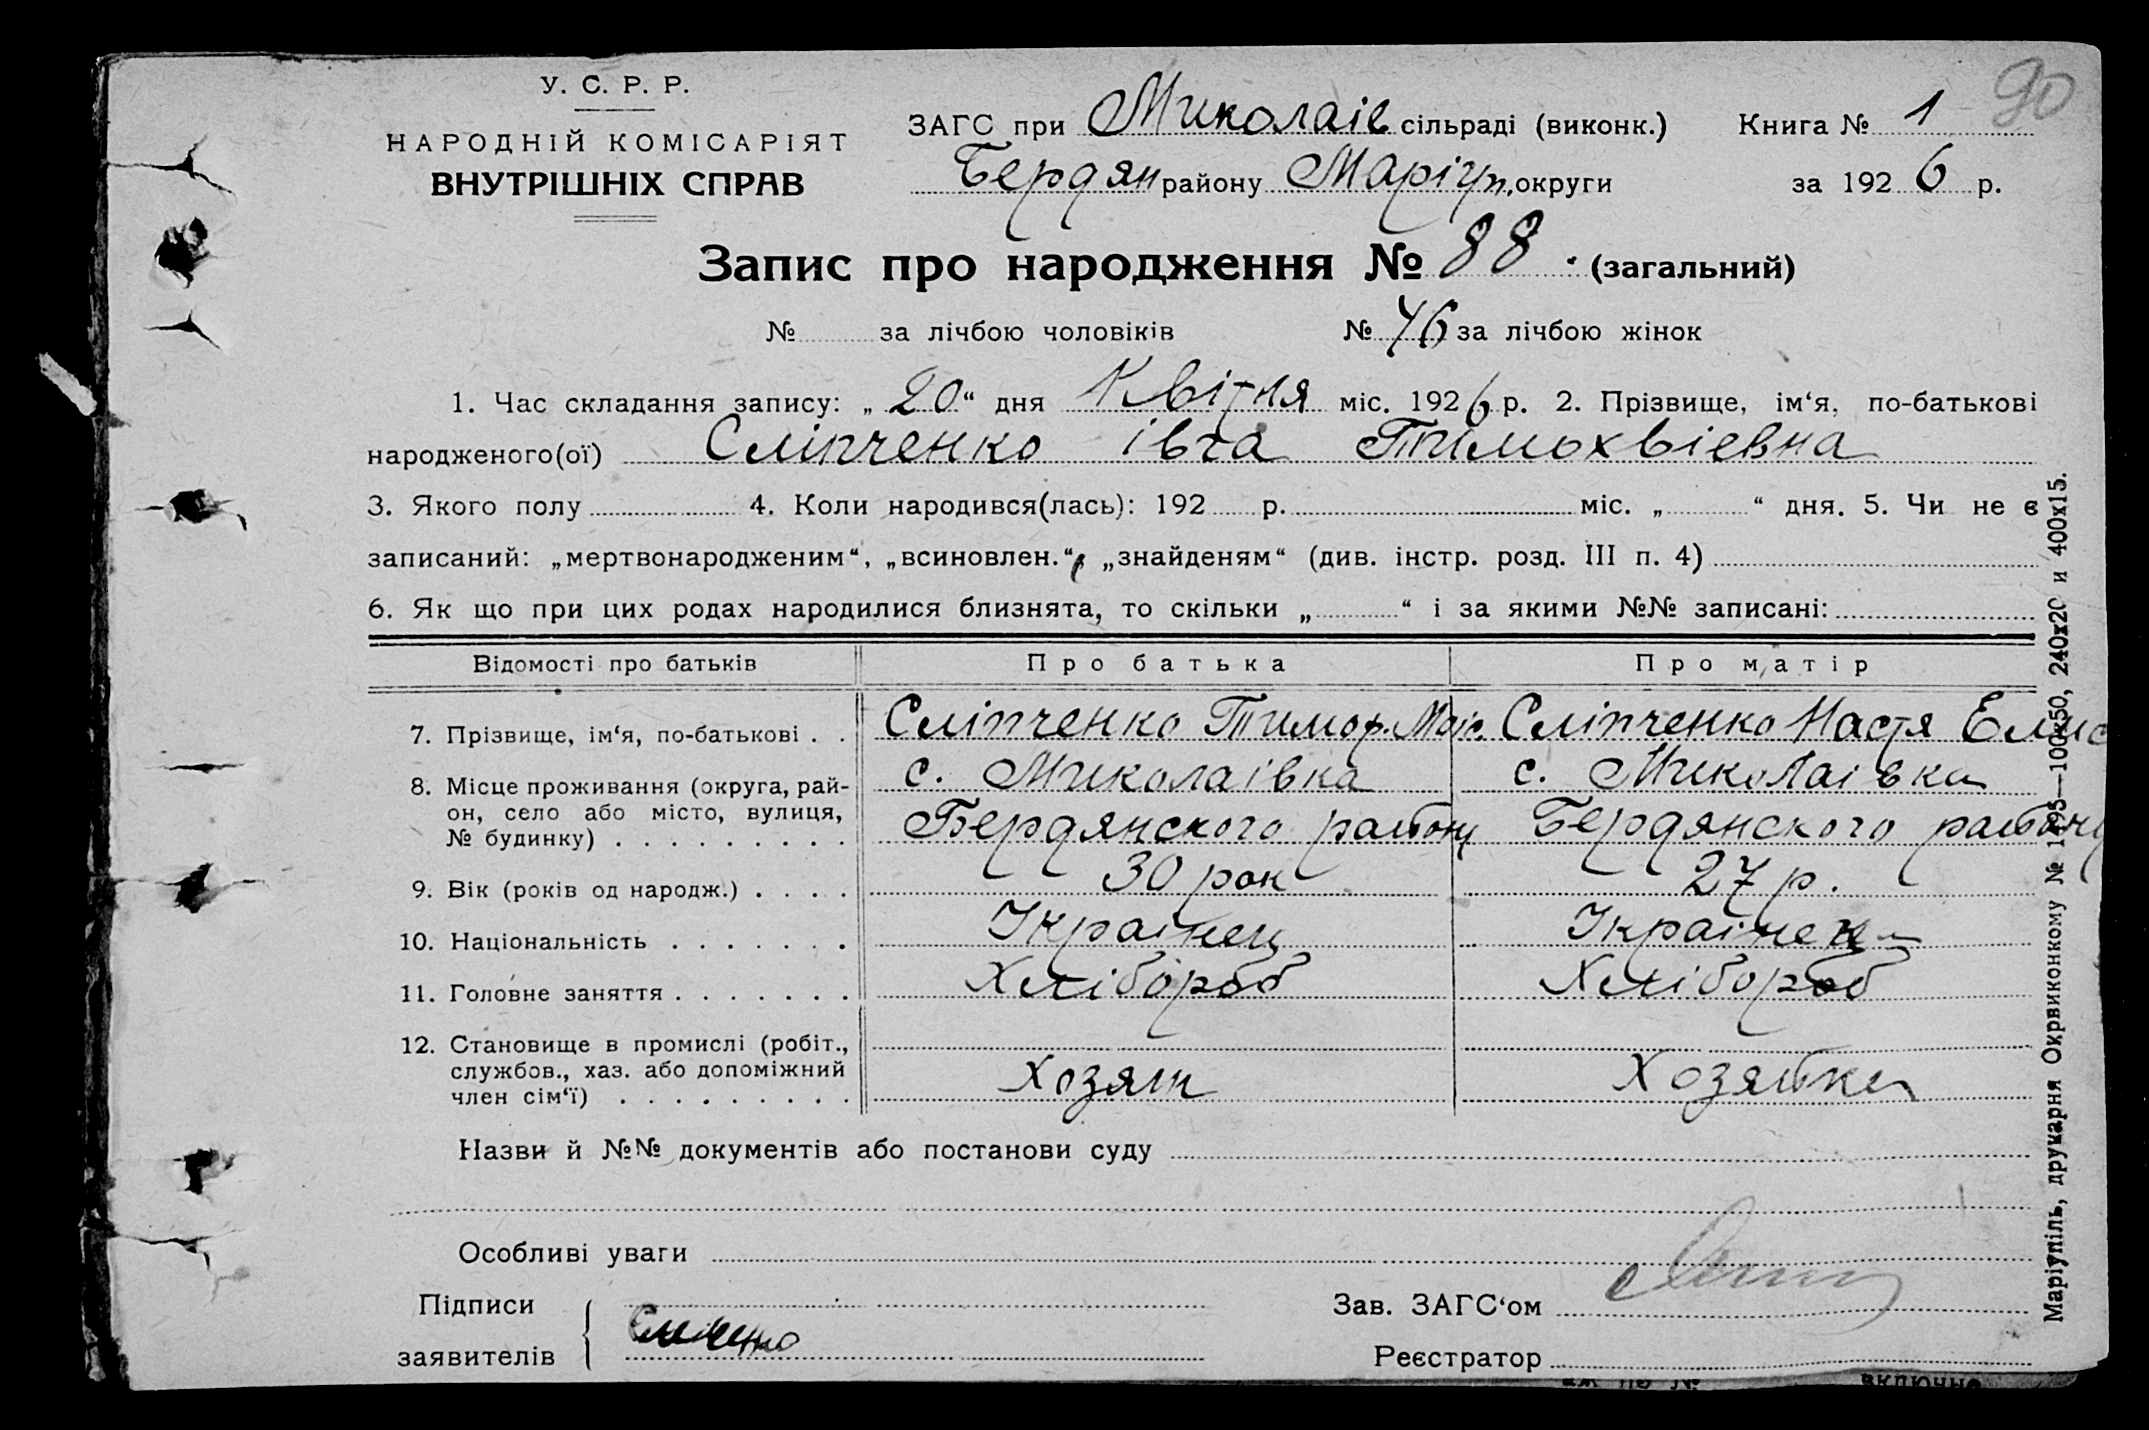 У. С. Р. Р.
НАРОДНІЙ КОМІСАРІЯТ
ВНУТРІШНІХ СПРАВ
ЗАГС при Миколаів сільраді (виконк.) Книга № 1 90
Бердян району Маріуп. округи за 192 6 р.
Запис про народження № 88 (загальний)
№ за лічбою чоловіків № 46 за лічбою жінок
1. Час складання запису: „20“ дня Квітня міс. 1926 р. 2. Прізвище, ім‘я, по-батькові
народженого(ої) Сліпченко івга Тимохвіевна
3. Якого полу 4. Коли народився(лась): 192 р. міс. „ “ дня. 5. Чи не є
записаний: „мертвонародженим“, „всиновлен.“, „знайденям“ (див. інстр. розд. III п. 4)
6. Як що при цих родах народилися близнята, то скільки „ “ і за якими №№ записані:
Відомості про батьків Про батька Про матір
7. Прізвище, ім‘я, по-батькові . . Сліпченко Тимоф. Сліпченко Настя Елис
8. Місце проживання (округа, рай- с. Миколаівка с. Миколаівка
он, село або місто, вулиця,
№ будинку) . . . . . . . . . Бердянского району Бердянского району
9. Вік (років од народж.) . . . . 30 рок 27 р.
10. Національність . . . . . . . Украінец Украінец
11. Головне заняття . . . . . . . Хлібороб Хлібороб
12. Становище в промислі (робіт.,
службов., хаз. або допоміжний
член сім‘ї) . . . . . . . . . Хозяін Хозяйка
Назви й №№ документів або постанови суду
Особливі уваги
Підписи
заявителів
Зав. ЗАГС‘ом
Реєстратор
Маріупіль, друкарня Окрвиконкому № 1495—100х50, 240х20 и 400х15.